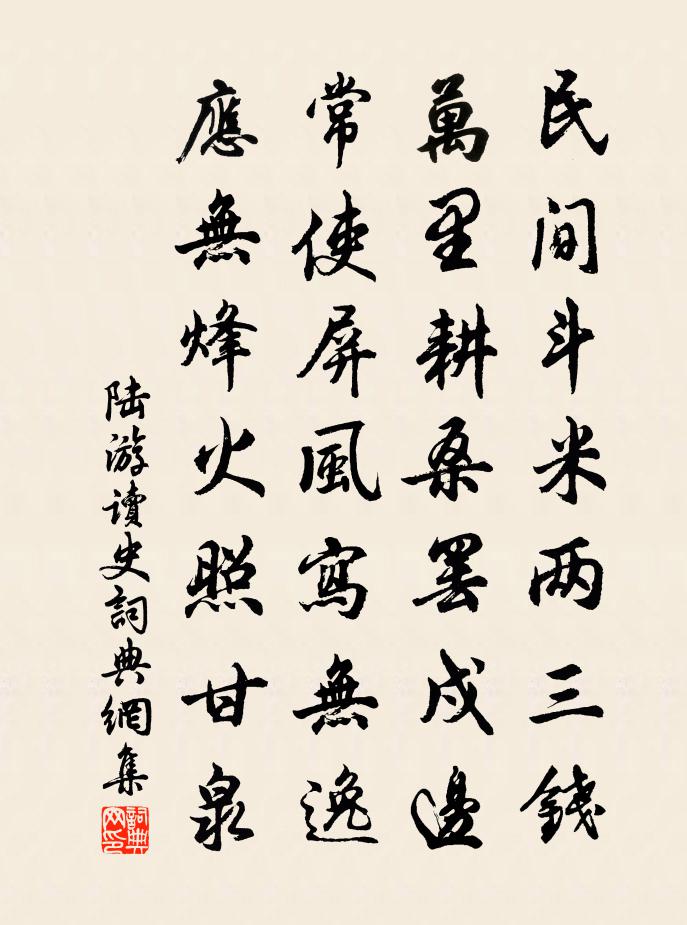 民間斗米两三錢
萬里耕桑罷戍邊
常使屏風寫無逸
應無烽火照甘泉
陆游讀史詞典網集
詞典网印